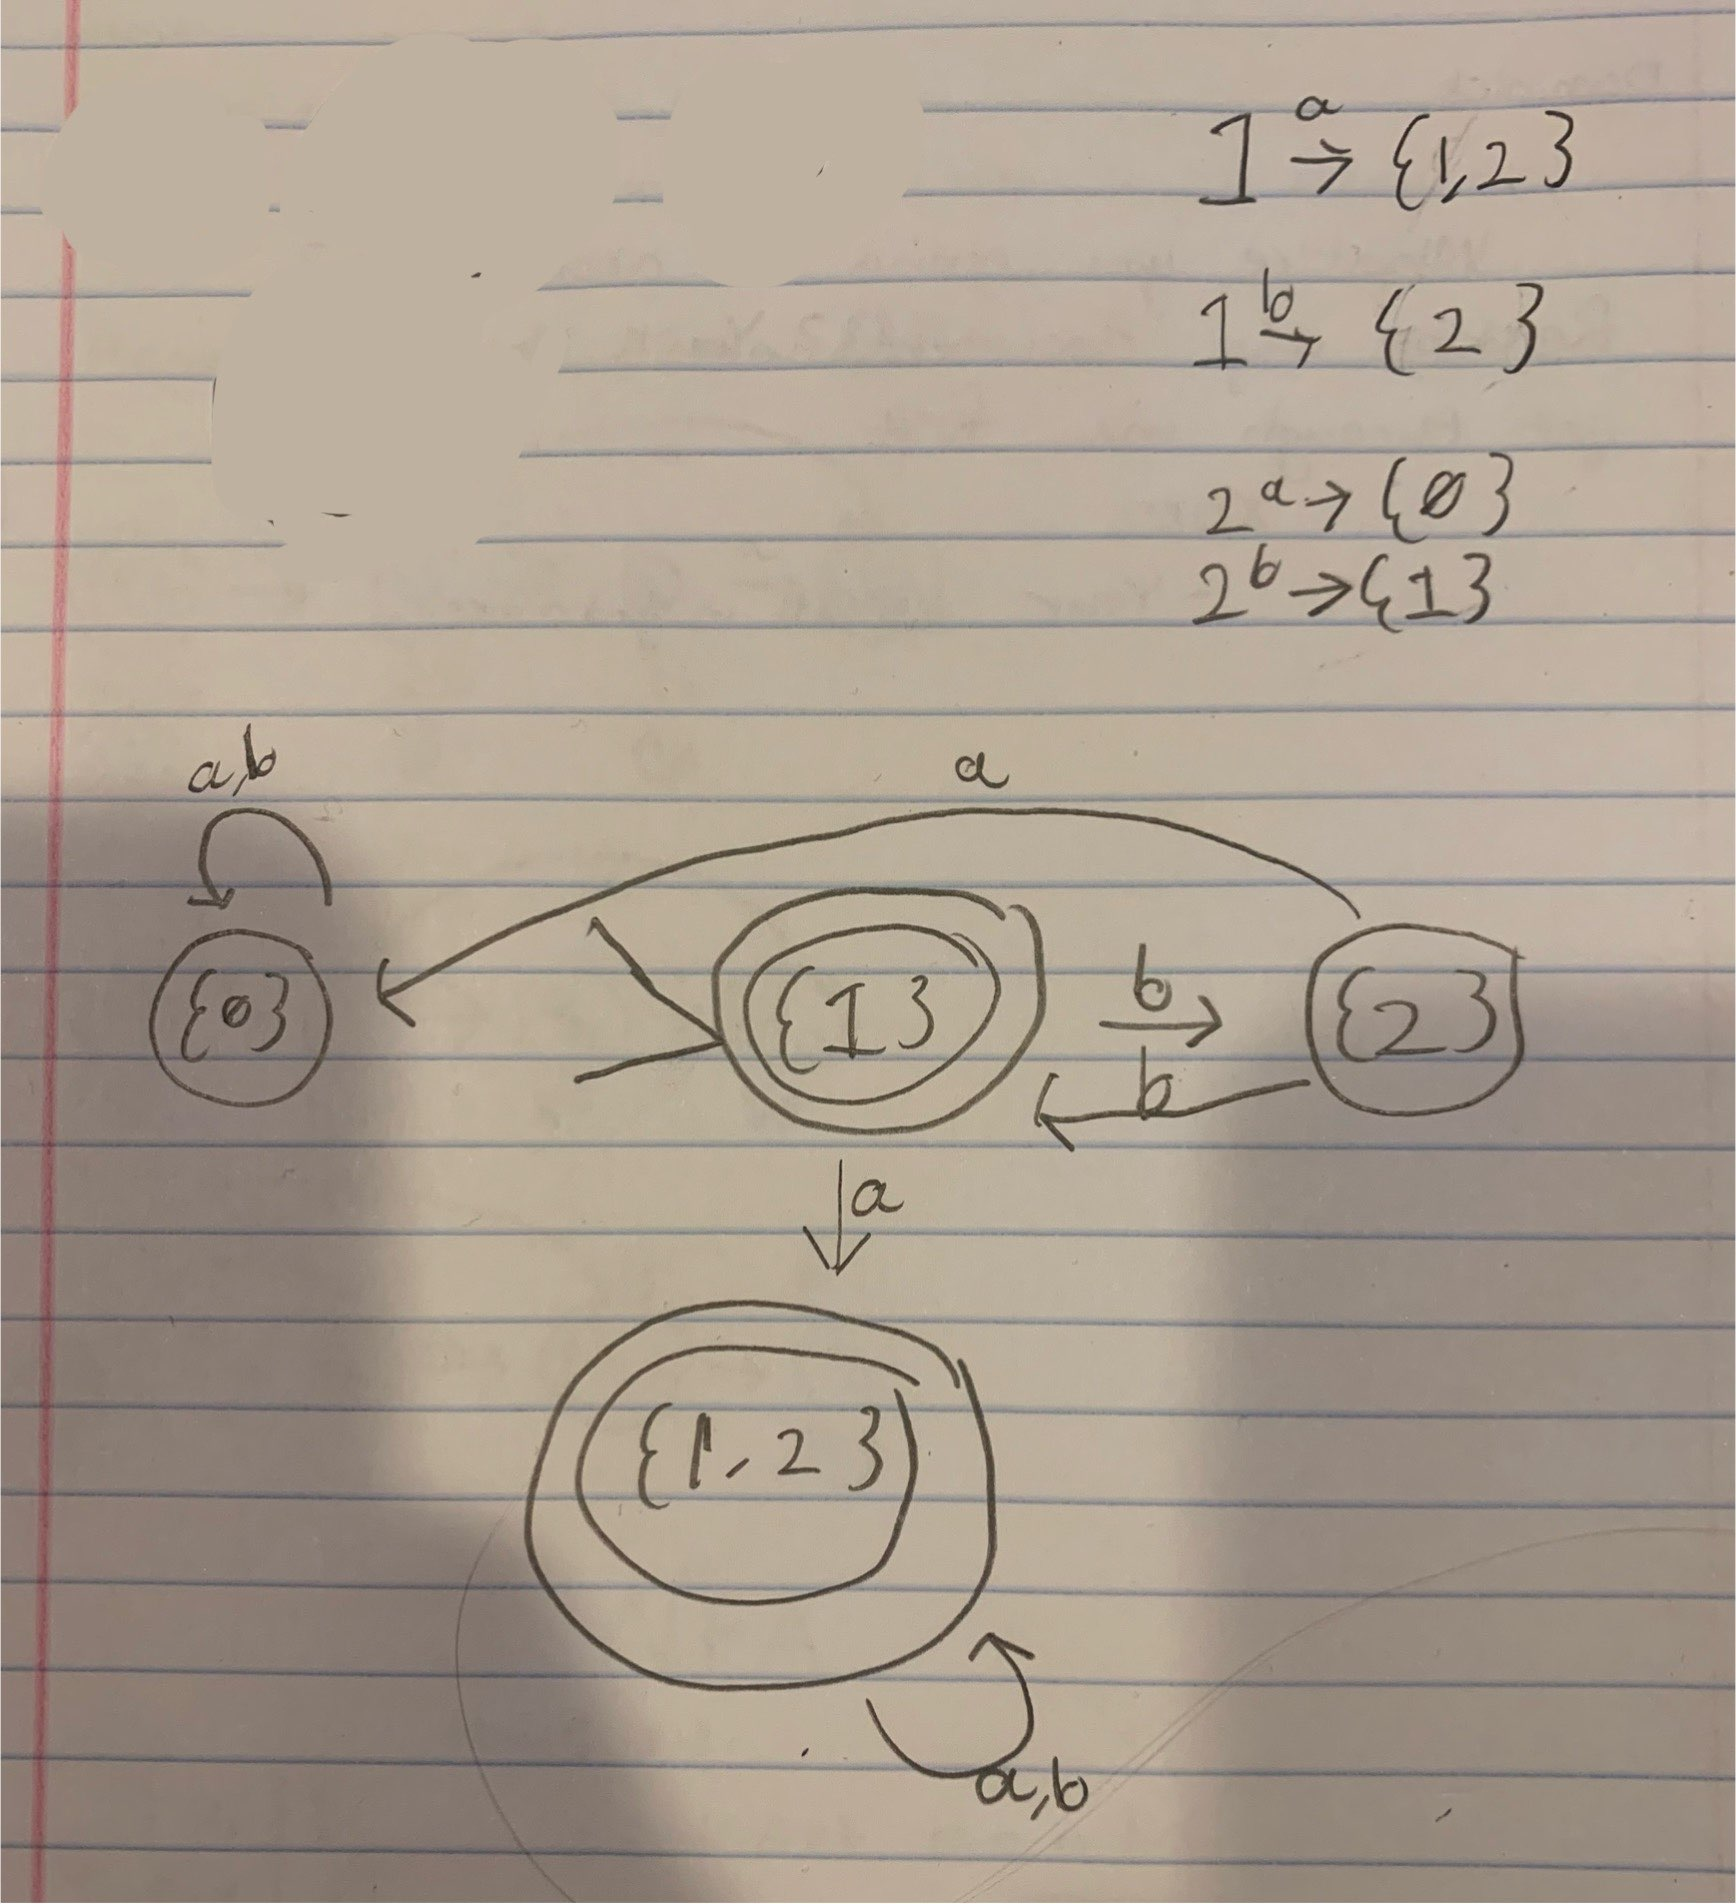 1 a→ {1,2}
1 b→ {2}
2 a→ {ø}
2 b→ {1}
a,b
a
{ø}
{1}
b
{2}
b
a
{1,2}
a,b